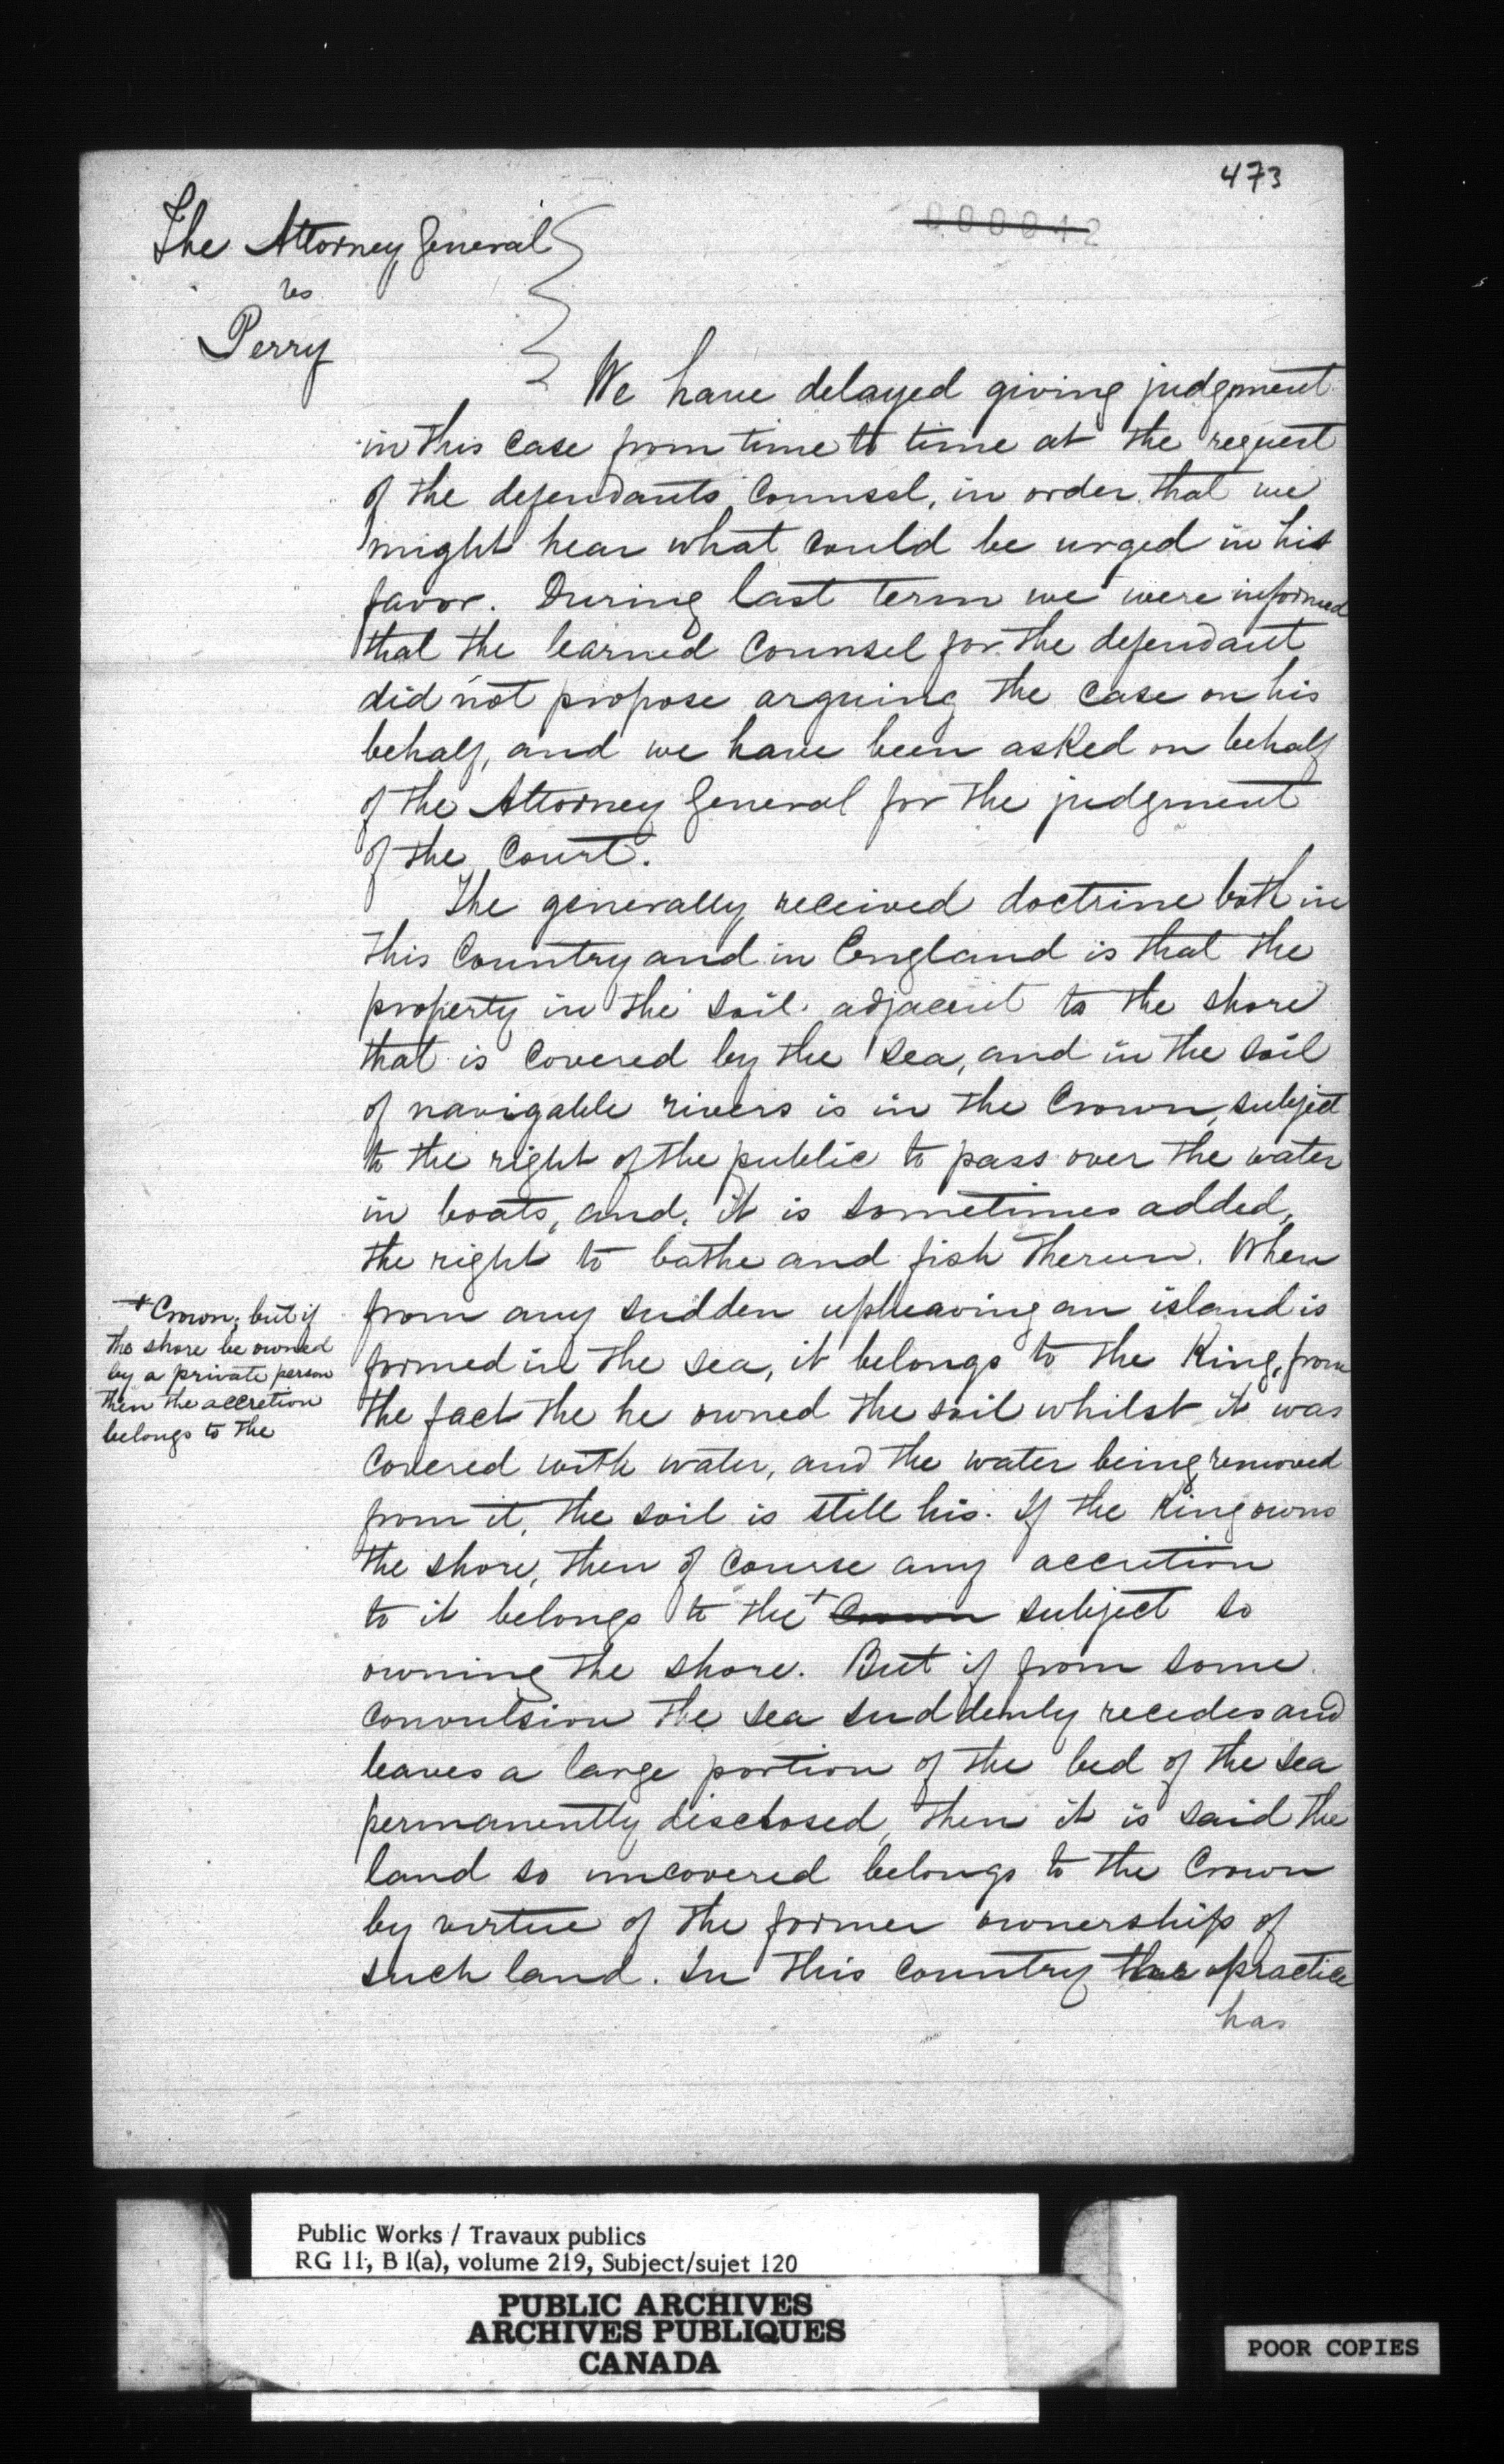 473
000042
The Attorney General
vs
Perry
We have delayed giving judgment
in this case from time to time at the request
of the defendants Counsel, in order that we
might hear what could be urged in his
favor. During last term we were informed
that the learned Counsel for the defendant
did not propose arguing the case on his
behalf, and we have been asked on behalf
of the Attorney General for the judgment
of the Court.
The generally received doctrine both in
this Country and in England is that the
property in the soil adjacent to the shore
that is covered by the sea, and in the soil
of navigable rivers is in the Crown, subject
to the right of the public to pass over the water
in boats, and, it is sometimes added,
the right to bathe and fish therein. When
from any sudden upheaving an island is
formed in the sea, it belongs to the King, from
the fact the he owned the soil whilst it was
covered with water, and the water being removed
from it, the soil is still his. If the King owns
the shore, then of course any accretion
to it belongs to the + Crown subject so
owning the shore. But if from some
convulsion the sea suddenly recedes and
leaves a large portion of the bed of the sea
permanently disclosed, then it is said the
land so uncovered belongs to the Crown
by virtue of the former ownership of
such land. In this Country the practice
has
+ Crown; but if
the shore be owned
by a private person
then the accretion
belongs to the
Public Works / Travaux publics
RG 11, B 1(a), volume 219, Subject/sujet 120
PUBLIC ARCHIVES
ARCHIVES PUBLIQUES
CANADA
POOR COPIES